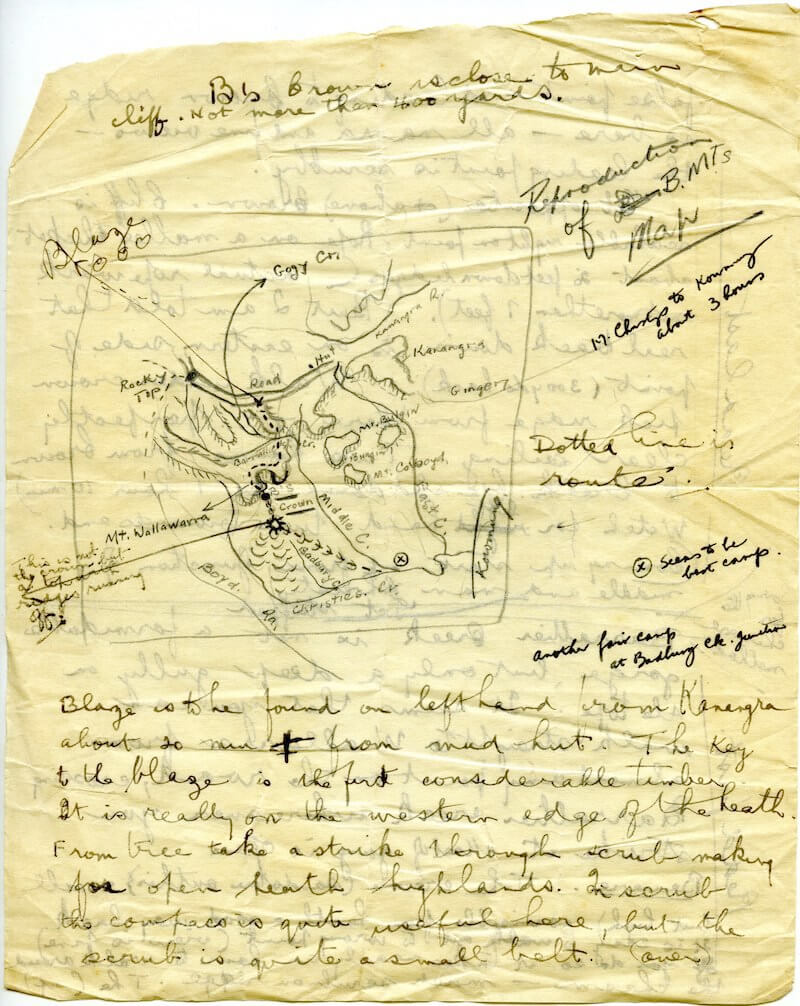 B's Crown is close to main
cliff. Not more than 400 yards.
Reproduction
of B. MTs
Map
Blaze
Gogy Cr.
17. Christys to Kowmung
about 3 hours
Kanangra R.
Hut
Kanangra
Rocky
Top
Road
Gingery
Mt. Bulgin
Dotted line is
route.
Cr.
Bulgin
Mt. Colboyd.
B's
Crown
East C.
Middle C.
Mt. Wallawarra
Kowmung.
This is not
the
ridges running
Badbury C.
Boyd.
Ra.
Christies. Cr.
x
x Seems to be
best camp.
another fair camp
at Badbury Ck. Junction
Blaze is to be found on lefthand from Kanangra
about 20 min from mud hut. The Key
to the blaze is the first considerable timber.
It is really on the western edge of the heath.
From tree take a strike through scrub making
for open heath highlands. In scrub
the compass is quite useful here, but the
scrub is quite a small belt. (over)